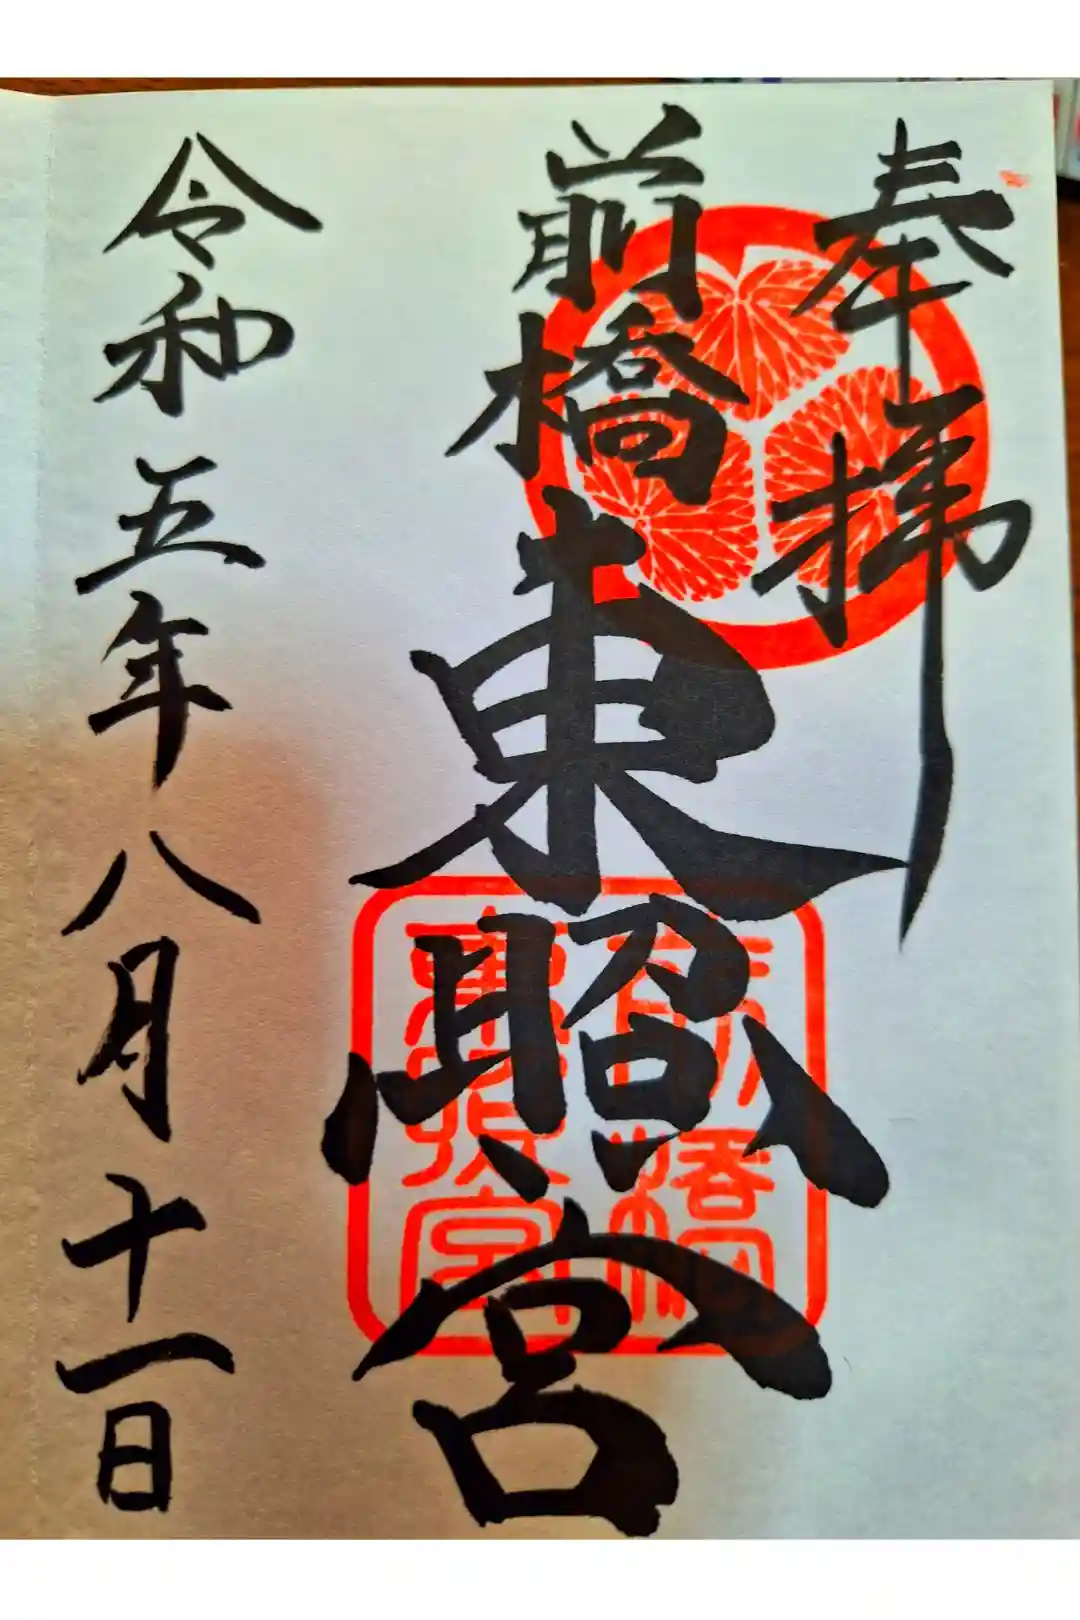 奉拝
前橋東照宮
令和五年八月十一日
前橋
東照宮